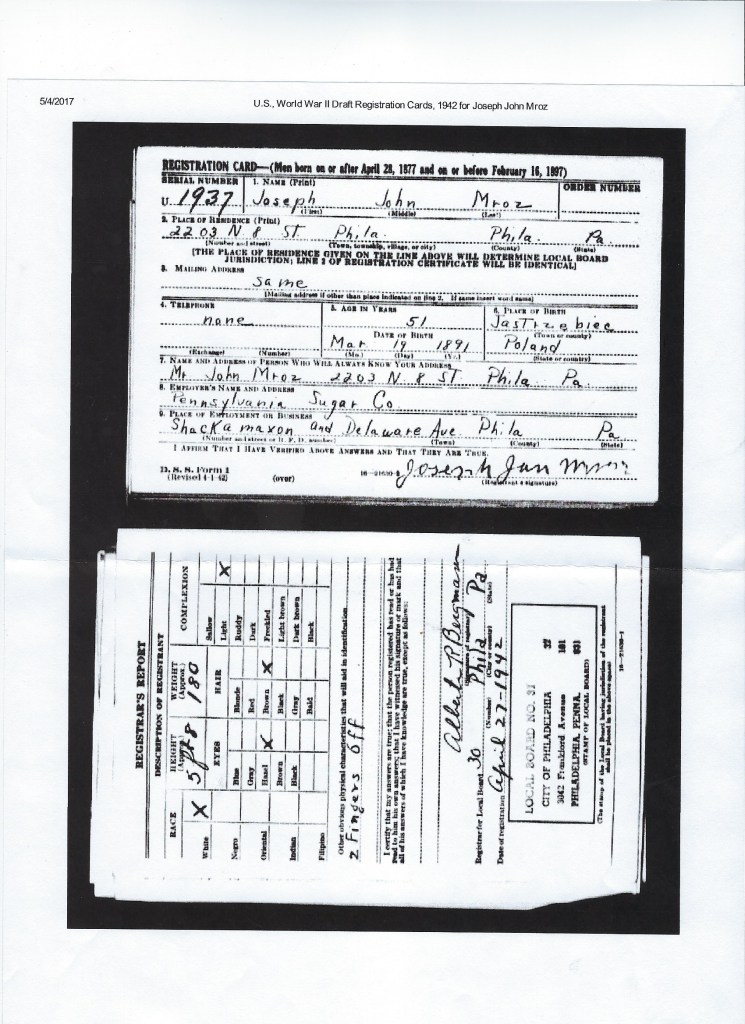 5/4/2017
U.S., World War II Draft Registration Cards, 1942 for Joseph John Mroz
REGISTRATION CARD—(Men born on or after April 28, 1877 and on or before February 16, 1897)
SERIAL NUMBER 1. NAME (Print) ORDER NUMBER
U 1937 Joseph John Mroz
(First) (Middle) (Last)
2. PLACE OF RESIDENCE (Print)
2203 N 8 ST. Phila. Phila. Pa.
(Number and street) (Town, township, village, or city) (County) (State)
[THE PLACE OF RESIDENCE GIVEN ON THE LINE ABOVE WILL DETERMINE LOCAL BOARD
JURISDICTION; LINE 2 OF REGISTRATION CERTIFICATE WILL BE IDENTICAL]
3. MAILING ADDRESS
same
[Mailing address if other than place indicated on line 2. If same insert word same]
4. TELEPHONE 5. AGE IN YEARS 6. PLACE OF BIRTH
none 51 Jastrzebiec
DATE OF BIRTH (Town or county)
Mar. 19 1891 Poland
(Exchange) (Number) (Mo.) (Day) (Yr.) (State or country)
7. NAME AND ADDRESS OF PERSON WHO WILL ALWAYS KNOW YOUR ADDRESS
Mr John Mroz 2203 N. 8 ST. Phila Pa.
8. EMPLOYER'S NAME AND ADDRESS
Pennsylvania Sugar Co
9. PLACE OF EMPLOYMENT OR BUSINESS
Shackamaxon and Delaware Ave. Phila Pa
(Number and street or R. F. D. number) (Town) (County) (State)
I AFFIRM THAT I HAVE VERIFIED ABOVE ANSWERS AND THAT THEY ARE TRUE.
D. S. S. Form 1
(Revised 4-1-42) (over) 16—21630-2 Joseph Jan Mroz
(Registrant's signature)
REGISTRAR'S REPORT
DESCRIPTION OF REGISTRANT
RACE HEIGHT (Approx.) WEIGHT (Approx.) COMPLEXION
5 ft 8 180
White X EYES HAIR Sallow
Light X
Negro Blue Blonde Ruddy
Gray Red Dark
Oriental Hazel X Brown X Freckled
Brown Black Light brown
Indian Black Gray Dark brown
Bald Black
Filipino
Other obvious physical characteristics that will aid in identification
2 Fingers off
I certify that my answers are true; that the person registered has read or has had
read to him his own answers; that I have witnessed his signature or mark and that
all of his answers of which I have knowledge are true, except as follows:
Albert R Bergman
(Signature of registrar)
Registrar for Local Board 30 Phila Pa
(Number) (City or county) (State)
Date of registration April 27-1942
LOCAL BOARD NO. 31 32
CITY OF PHILADELPHIA 101
3042 Frankford Avenue 031
PHILADELPHIA, PENNA.
(STAMP OF LOCAL BOARD)
(The stamp of the Local Board having jurisdiction of the registrant
shall be placed in the above space)
16—21630-1